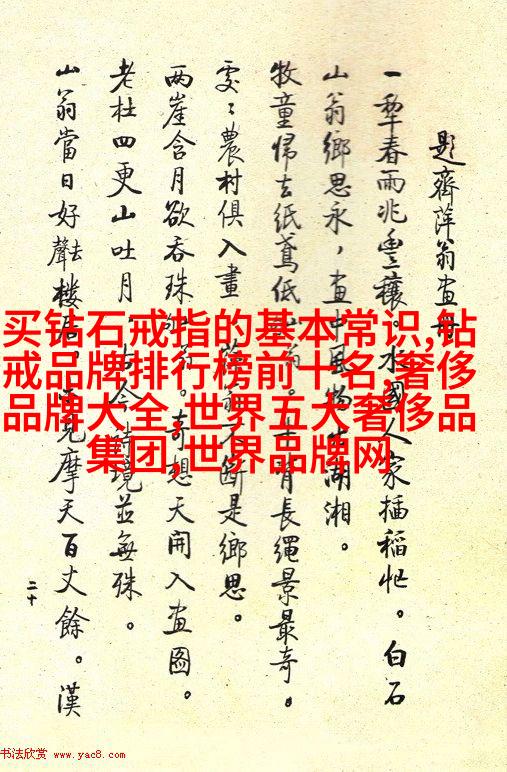 題齊萍翁畫
一犁春雨兆豐穰。水國人家插稻忙。白石
山翁鄉思永，畫中風物湖湘。
牧童歸去紙鳶低翁。牛背長繩景最奇。
處〻農村俱入畫不斷是鄉思。
兩崖含月欲吞珠翁。奇想天開入畫圖。
老杜四更山吐月，古今詩境並無殊。
山翁當日好去聲樓居。見摩天百丈餘。漢
二十
买钻石戒指的基本常识,钻
戒品牌排行榜前十名,奢侈
品牌大全,世界五大奢侈品
集团,世界品牌网
书法欣赏 www.yac8.com